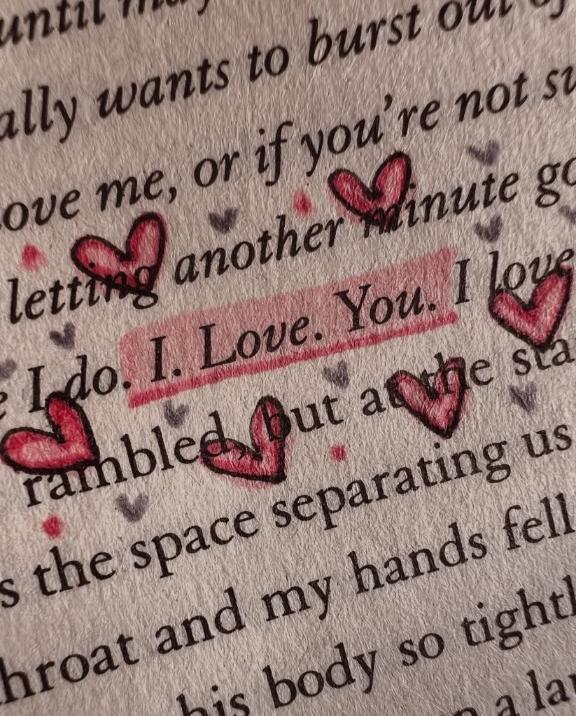 until
ally wants to burst out
ove me, or if you're not su
letting another minute go
I do. I. Love. You. I love
rambled, but at the sta
s the space separating us
hroat and my hands fell
his body so tightl
a la